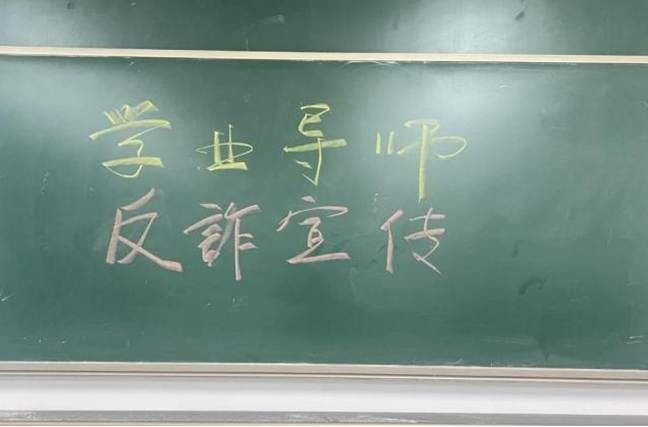 学业导师
反詐宣传